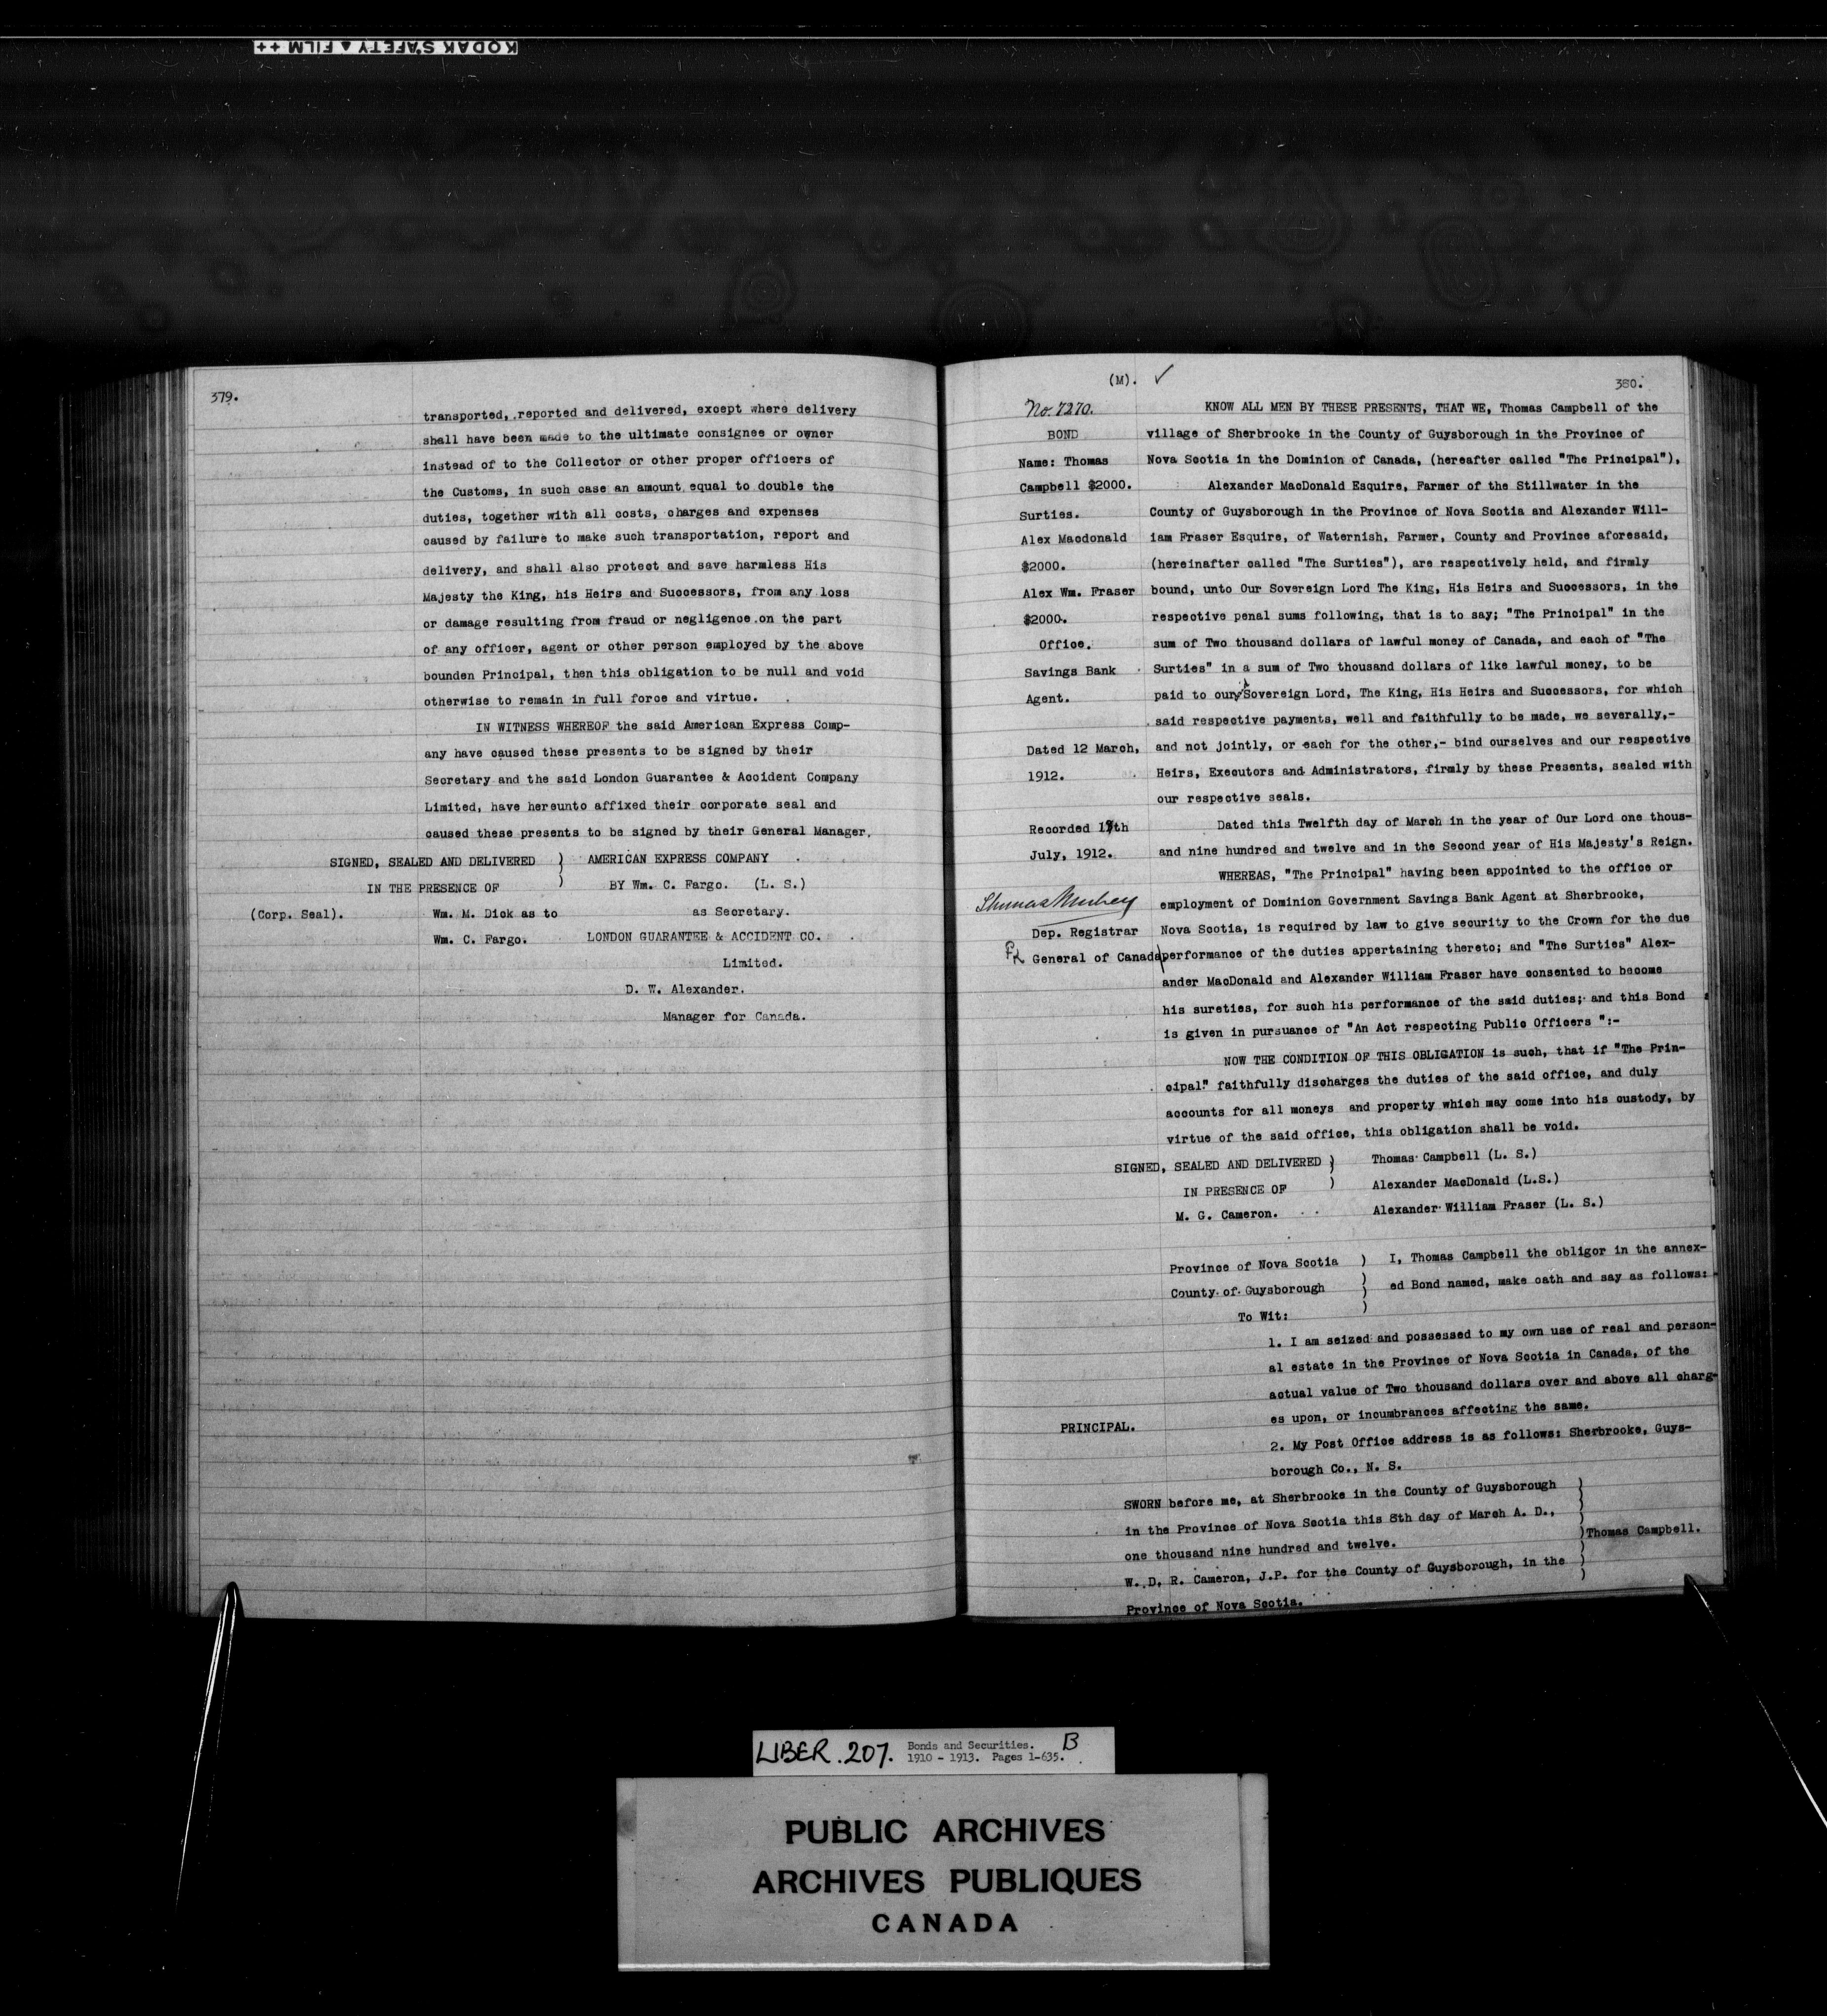 KODAK SAFETY FILM ++
379.
transported, reported and delivered, except where delivery
shall have been made to the ultimate consignee or owner
instead of to the Collector or other proper officers of
the Customs, in such case an amount equal to double the
duties, together with all costs, charges and expenses
caused by failure to make such transportation, report and
delivery, and shall also protect and save harmless His
Majesty the King, his Heirs and Successors, from any loss
or damage resulting from fraud or negligence on the part
of any officer, agent or other person employed by the above
bounden Principal, then this obligation to be null and void
otherwise to remain in full force and virtue.
IN WITNESS WHEREOF the said American Express Comp-
any have caused these presents to be signed by their
Secretary and the said London Guarantee & Accident Company
Limited, have hereunto affixed their corporate seal and
caused these presents to be signed by their General Manager.
SIGNED, SEALED AND DELIVERED ) AMERICAN EXPRESS COMPANY
IN THE PRESENCE OF ) BY Wm. C. Fargo. (L. S.)
(Corp. Seal). Wm. M. Dick as to as Secretary.
Wm. C. Fargo. LONDON GUARANTEE & ACCIDENT CO.
Limited.
D. W. Alexander.
Manager for Canada.
(M). ✓ 380.
No. 7270.
BOND
Name: Thomas
Campbell $2000.
Surties.
Alex Macdonald
$2000.
Alex Wm. Fraser
$2000.
Office.
Savings Bank
Agent.
Dated 12 March,
1912.
Recorded 17th
July, 1912.
Thomas Mulvey
Dep. Registrar
General of Canada
KNOW ALL MEN BY THESE PRESENTS, THAT WE, Thomas Campbell of the
village of Sherbrooke in the County of Guysborough in the Province of
Nova Scotia in the Dominion of Canada, (hereafter called "The Principal"),
Alexander MacDonald Esquire, Farmer of the Stillwater in the
County of Guysborough in the Province of Nova Scotia and Alexander Will-
iam Fraser Esquire, of Waternish, Farmer, County and Province aforesaid,
(hereinafter called "The Surties"), are respectively held, and firmly
bound, unto Our Sovereign Lord The King, His Heirs and Successors, in the
respective penal sums following, that is to say; "The Principal" in the
sum of Two thousand dollars of lawful money of Canada, and each of "The
Surties" in a sum of Two thousand dollars of like lawful money, to be
paid to our Sovereign Lord, The King, His Heirs and Successors, for which
said respective payments, well and faithfully to be made, we severally,-
and not jointly, or each for the other,- bind ourselves and our respective
Heirs, Executors and Administrators, firmly by these Presents, sealed with
our respective seals.
Dated this Twelfth day of March in the year of Our Lord one thous-
and nine hundred and twelve and in the Second year of His Majesty's Reign.
WHEREAS, "The Principal" having been appointed to the office or
employment of Dominion Government Savings Bank Agent at Sherbrooke,
Nova Scotia, is required by law to give security to the Crown for the due
performance of the duties appertaining thereto; and "The Surties" Alex-
ander MacDonald and Alexander William Fraser have consented to become
his sureties, for such his performance of the said duties; and this Bond
is given in pursuance of "An Act respecting Public Officers ":-
NOW THE CONDITION OF THIS OBLIGATION is such, that if "The Prin-
cipal" faithfully discharges the duties of the said office, and duly
accounts for all moneys and property which may come into his custody, by
virtue of the said office, this obligation shall be void.
SIGNED, SEALED AND DELIVERED ) Thomas Campbell (L. S.)
IN PRESENCE OF ) Alexander MacDonald (L.S.)
M. G. Cameron. Alexander William Fraser (L. S.)
Province of Nova Scotia ) I, Thomas Campbell the obligor in the annex-
County of Guysborough ) ed Bond named, make oath and say as follows:
To Wit: )
1. I am seized and possessed to my own use of real and person-
al estate in the Province of Nova Scotia in Canada, of the
actual value of Two thousand dollars over and above all charg-
es upon, or incumbrances affecting the same.
PRINCIPAL.
2. My Post Office address is as follows: Sherbrooke, Guys-
borough Co., N. S.
SWORN before me, at Sherbrooke in the County of Guysborough )
in the Province of Nova Scotia this 8th day of March A. D., )
one thousand nine hundred and twelve. )Thomas Campbell.
W. D. R. Cameron, J.P. for the County of Guysborough, in the )
Province of Nova Scotia.
LIBER. 207. Bonds and Securities. B
1910 - 1913. Pages 1-635.
PUBLIC ARCHIVES
ARCHIVES PUBLIQUES
CANADA